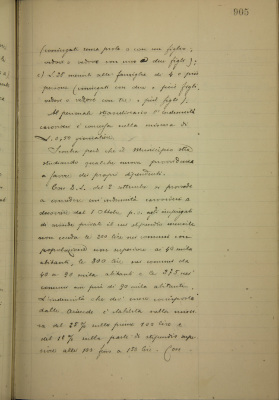 905
(coniugati senza prole o con un figlio,
vedovi o vedove con uno o due figli);
c) L. 25 mensili alle famiglie di 4 o più
persone (coniugati con due o più figli,
vedovi o vedove con tre o più figli).
Al personale straordinario l'indennità
caroviveri è concessa nella misura di
L. 0,50 giornaliere.
Sembra però che il Municipio stia
studiando qualche nuova provvidenza
a favore dei propri dipendenti.
Con D.L. del 2 settembre si provvede
a concedere una indennità caroviveri a
decorrere dal 1 Ottobre p.v. agli impiegati
di aziende private il cui stipendio mensile
non ecceda le 200 lire nei comuni con
popolazione non superiore ai 40 mila
abitanti, le 300 lire nei comuni da
40 a 90 mila abitanti e le nei
comuni con più di 90 mila abitanti.
L'indennità che dev'essere corrisposta
dalle Aziende è stabilita nella misura
del 25% sulle prime 100 lire e
del sulla parte di stipendio superiore
alle 100 fino a lire. Con